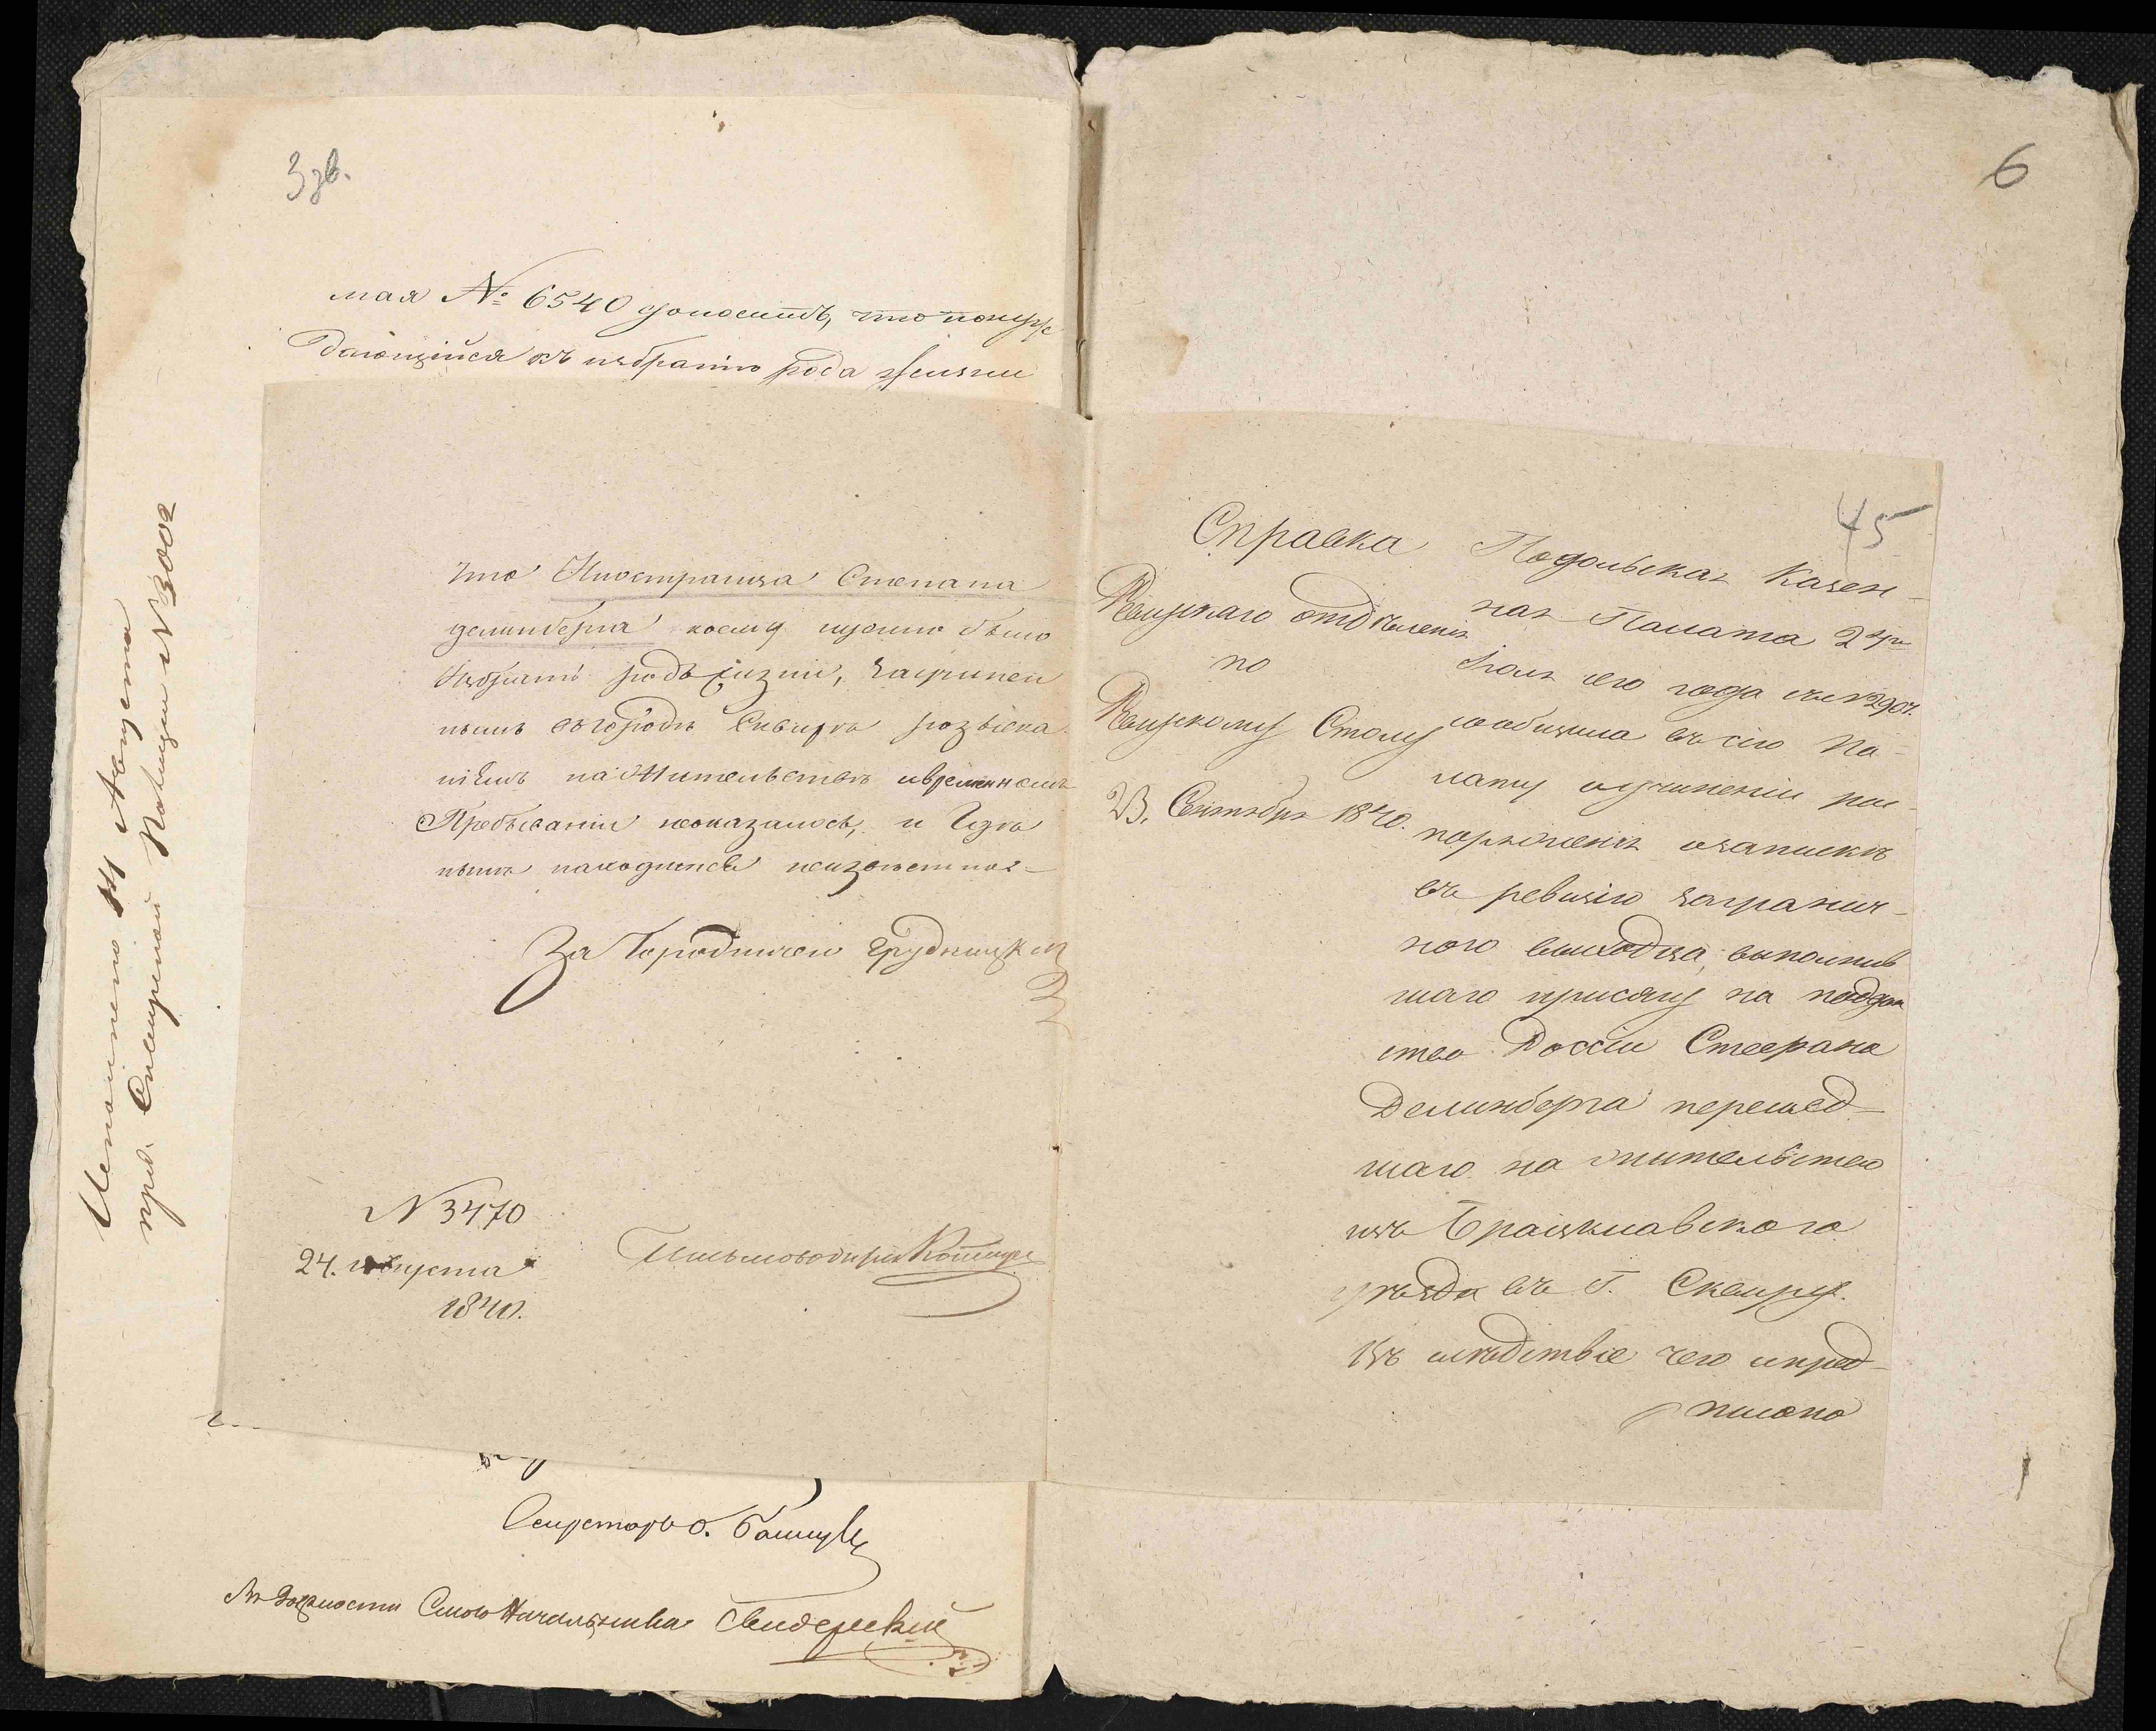 3 зв.
мая № 6540 доноситъ, что понуж
дающійся къ избранію рода жизни
Исполнено 14 Августа
пред. Сквирской Полиции №3002
что Иностранца Степана
делинберга коему нужно было
Избрать родъ жизни, за учинен
нымъ въ городѣ Сквирѣ розыска
ніемъ на Жительствѣ ивременномъ
Пребываніи неоказалось, и Гдѣ
нынѣ находится неизвѣстно
За Городничаго
N 3470
24. августа
1840.
Письмоводитель
Секретарь
Въ должности Столо Начальника Свидерский
6
45
Справка
Ревизскаго отдѣленія
по
Ревизскому Столу
23. Сентября 1840.
Подольская Казен-
ная Палата 2 Ію
ля сего года за №
сообщила въ сію Па-
лату оучиненіи рас-
поряженія озапискѣ
въ ревизію загранич-
ного выходца, выполнив
шаго присягу на поддан
ство Россіи Стефана
Делинберга перешед-
шаго на жительство
изъ Брацлавского
уѣзда въ Г. Сквиру.
Въ слѣдствіе чего ипред-
писано